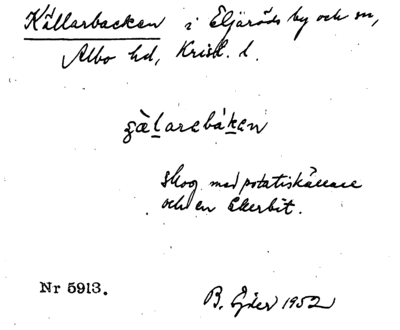 Källarbacken i Eljaröds by och sn,
Albo hd, Krist. l.
skog med potatiskällare
och en åkerbit.
Nr 5913.
B. Ejder 1952